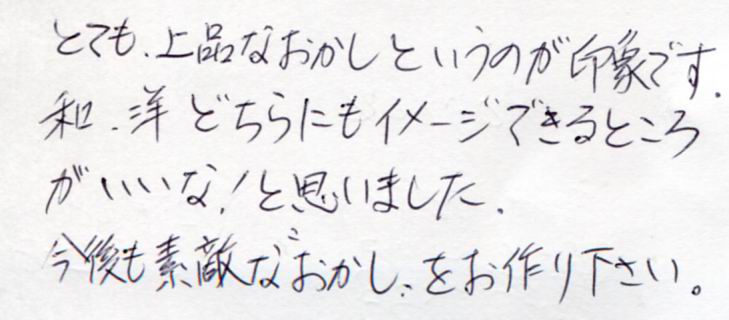 とても、上品なおかしというのが印象です.
和.洋どちらにもイメージできるところ
がいいな!と思いました.
今後も素敵な"おかし"をお作り下さい。